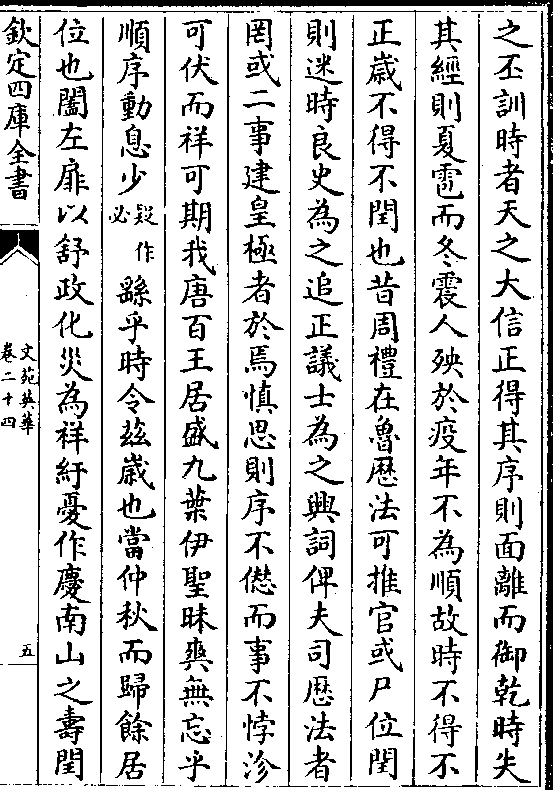 之丕訓時者天之大信正得其序則面離而御乾時失
其經則夏雹而冬震人殃於疫年不為順故時不得不
正歲不得不閏也昔周禮在魯厯法可推官或尸位閏
則迷時良史為之追正議士為之興詞俾夫司厯法者
罔或二事建皇極者於焉慎思則序不僽而事不悖沴
可伏而祥可期我唐百王居盛九葉伊聖昧爽無忘乎
順序動息少疑作必繇乎時令茲歲也當仲秋而歸餘居
位也闔左扉以舒政化災為祥紓憂作慶南山之壽閏
欽定四庫全書
文苑英華
卷二十四
五